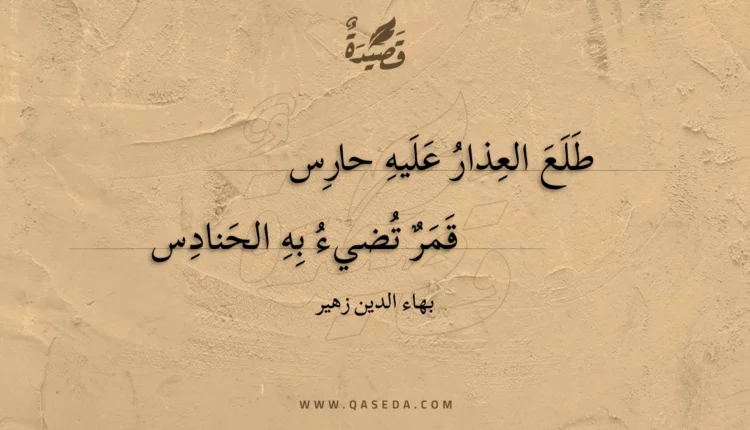 قَصِيدَةٌ
طَلَعَ العِذارُ عَلَيهِ حارِس
قَمَرٌ تُضيءُ بِهِ الحَنادِس
بهاء الدين زهير
WWW.QASEDA.COM